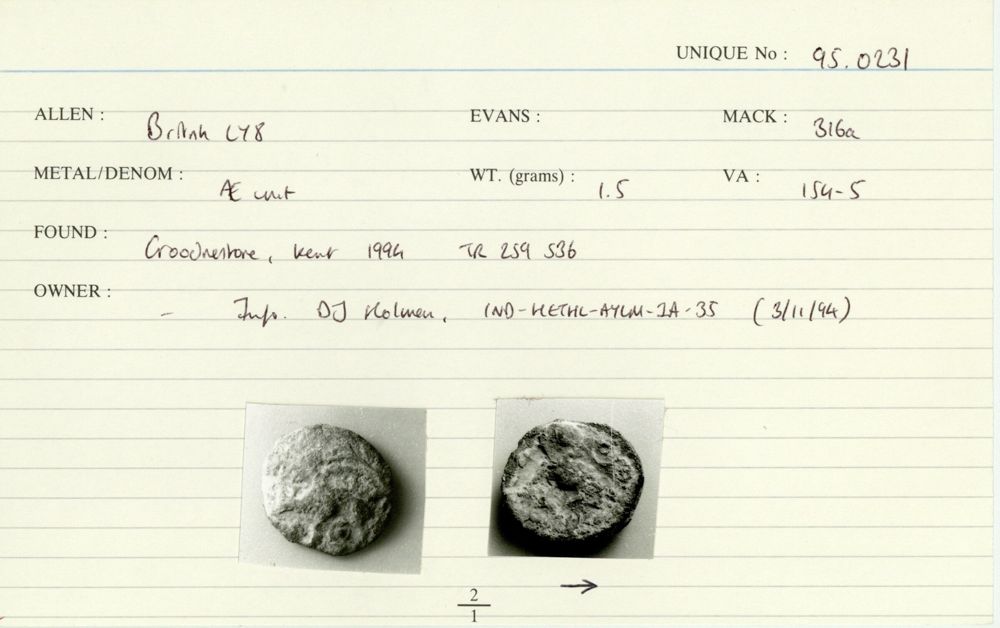 UNIQUE No : 95.0231
ALLEN : British LY8 EVANS : MACK : 316a
METAL/DENOM : Æ unit WT. (grams) : 1.5 VA : 154-5
FOUND : Goodnestone, Kent 1994 TR 259 536
OWNER : - Info. DJ Holman, IND-HETHL-AYLM-IA-35 (3/11/94)
→
2
1